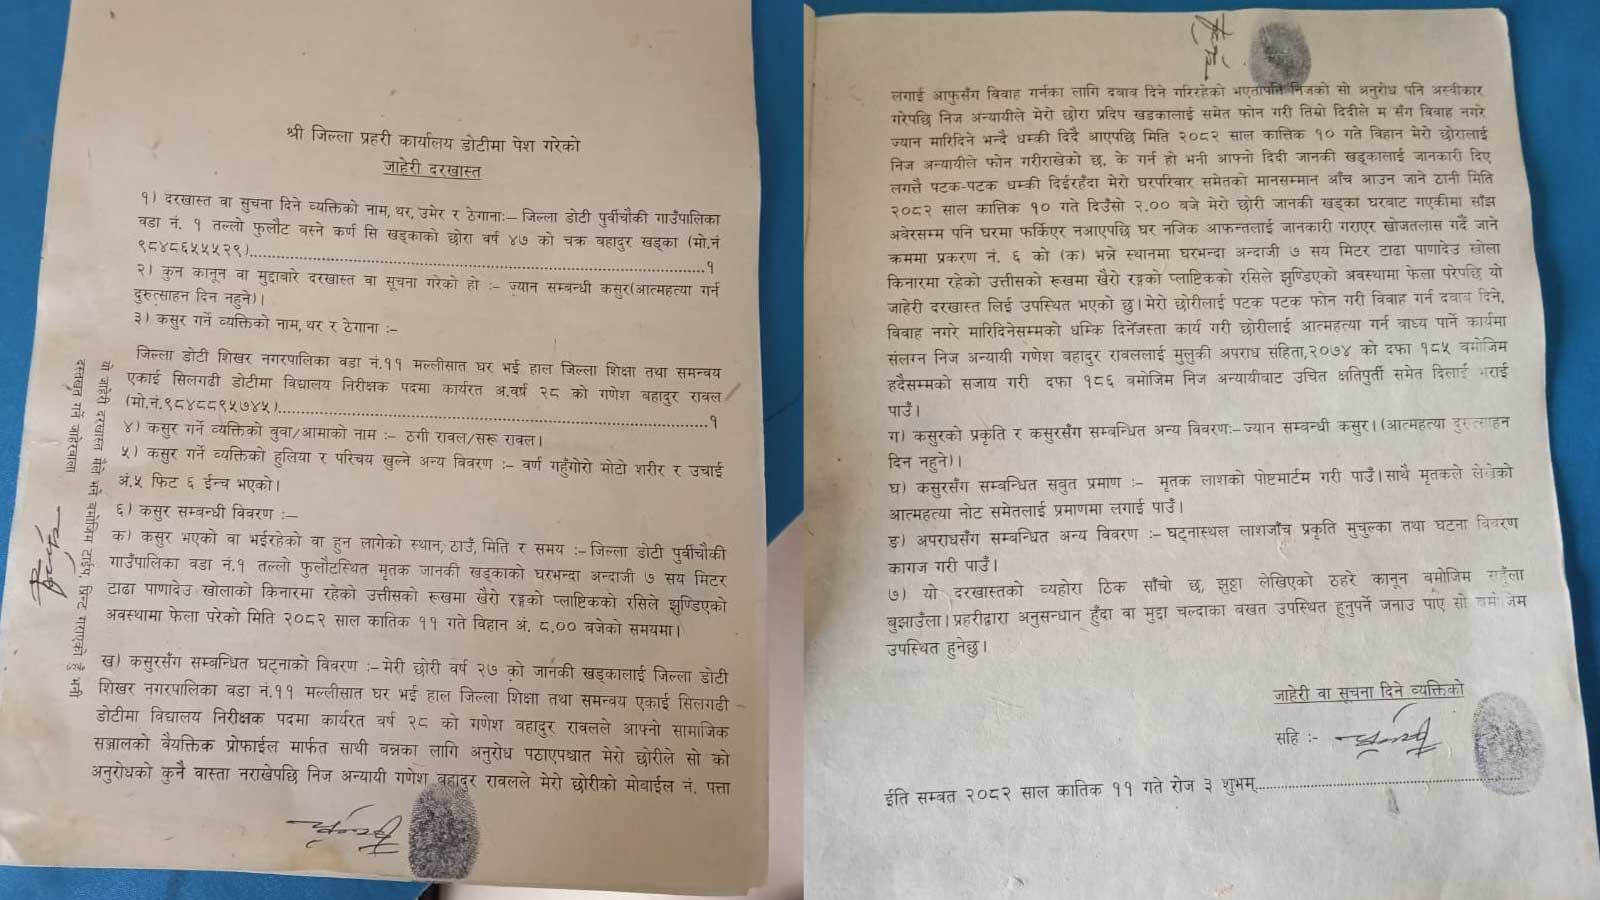 श्री जिल्ला प्रहरी कार्यालय डोटीमा पेश गरेको
जाहेरी दरखास्त
१) दरखास्त वा सुचना दिने व्यक्तिको नाम, थर, उमेर र ठेगानाः– जिल्ला डोटी पुर्वीचौकी गाउँपालिका
वडा नं. १ तल्लो फुलौट वस्ने कर्ण सि खड्काको छोरा वर्ष ४७ को चक्र बहादुर खड्का (मो.नं
९८४८६५५५२९)......१
२) कुन कानून वा मुद्दाबारे दरखास्त वा सूचना गरेको हो :– ज्यान सम्बन्धी कसुर(आत्महत्या गर्न
दुरुत्साहन दिन नहुने)।
३) कसुर गर्ने व्यक्तिको नाम, थर र ठेगाना :–
जिल्ला डोटी शिखर नगरपालिका वडा नं.११ मल्लीसात घर भई हाल जिल्ला शिक्षा तथा समन्वय
एकाई सिलगढी डोटीमा विद्यालय निरीक्षक पदमा कार्यरत अ.वर्ष २८ को गणेश बहादुर रावल
(मो.नं.९८४८८९५७४५)......१
४) कसुर गर्ने व्यक्तिको वुवा/आमाको नाम :– ठगी रावल/सरू रावल।
५) कसुर गर्ने व्यक्तिको हुलिया र परिचय खुल्ने अन्य विवरण :– वर्ण गहुँगोरो मोटो शरीर र उचाई
अं.५ फिट ६ ईन्च भएको।
६) कसुर सम्बन्धी विवरण :–
क) कसुर भएको वा भईरहेको वा हुन लागेको स्थान, ठाउँ, मिति र समय :– जिल्ला डोटी पुर्वीचौकी
गाउँपालिका वडा नं.१ तल्लो फुलौटस्थित मृतक जानकी खड्काको घरभन्दा अन्दाजी ७ सय मिटर
टाढा पाणादेउ खोलाको किनारमा रहेको उत्तीसको रूखमा खैरो रङ्गको प्लाष्टिकको रसिले झुण्डिएको
अवस्थामा फेला परेको मिति २०८२ साल कातिक ११ गते विहान अं. ८.०० बजेको समयमा।
ख) कसुरसँग सम्बन्धित घट्नाको विवरण :– मेरी छोरी वर्ष २७ को जानकी खड्कालाई जिल्ला डोटी
शिखर नगरपालिका वडा नं.११ मल्लीसात घर भई हाल जिल्ला शिक्षा तथा समन्वय एकाई सिलगढी
डोटीमा विद्यालय निरीक्षक पदमा कार्यरत वर्ष २८ को गणेश बहादुर रावलले आफ्नो सामाजिक
सञ्जालको वैयक्तिक प्रोफाईल मार्फत साथी वन्नका लागि अनुरोध पठाएपश्चात मेरो छोरीले सो को
अनुरोधको कुनै वास्ता नराखेपछि निज अन्यायी गणेश बहादुर रावलले मेरो छोरीको मोवाईल नं. पत्ता
यो जाहेरी दरखास्त मैले भने बमोजिम टाईप, प्रिन्ट गराएको हुँ भनी
दस्तखत गर्ने जाहेरवाला
लगाई आफुसँग विवाह गर्नका लागि दवाव दिने गरिरहेको भएतापनि निजको सो अनुरोध पनि अस्वीकार
गरेपछि निज अन्यायीले मेरो छोरा प्रदिप खडकालाई समेत फोन गरी तिम्रो दिदीले म सँग विवाह नगरे
ज्यान मारिदिने भन्दै धम्की दिदै आएपछि मिति २०८२ साल कात्तिक १० गते विहान मेरो छोरालाई
निज अन्यायीले फोन गरीराखेको छ, के गर्न हो भनी आफ्नो दिदी जानकी खड्कालाई जानकारी दिए
लगत्तै पटक-पटक धम्की दिईरहँदा मेरो घरपरिवार समेतको मानसम्मान आँच आउन जाने ठानी मिति
२०८२ साल कात्तिक १० गते दिउँसो २.०० बजे मेरो छोरी जानकी खड्का घरबाट गएकीमा साँझ
अबेरसम्म पनि घरमा फर्किएर नआएपछि घर नजिक आफन्तलाई जानकारी गराएर खोजतलास गर्दै जाने
क्रममा प्रकरण नं. ६ को (क) भन्ने स्थानमा घरभन्दा अन्दाजी ७ सय मिटर टाढा पाणादेउ खोला
किनारमा रहेको उत्तीसको रूखमा खैरो रङ्गको प्लाष्टिकको रसिले झुण्डिएको अवस्थामा फेला परेपछि यो
जाहेरी दरखास्त लिई उपस्थित भएको छु। मेरो छोरीलाई पटक पटक फोन गरी विवाह गर्न दवाव दिने,
विवाह नगरे मारिदिनेसम्मको धम्कि दिनेजस्ता कार्य गरी छोरीलाई आत्महत्या गर्न वाध्य पार्ने कार्यमा
संलग्न निज अन्यायी गणेश बहादुर रावललाई मुलुकी अपराध संहिता,२०७४ को दफा १८५ बमोजिम
हदैसम्मको सजाय गरी दफा १८६ बमोजिम निज अन्यायीवाट उचित क्षतिपुर्ती समेत दिलाई भराई
पाउँ।
ग) कसुरको प्रकृति र कसुरसँग सम्बन्धित अन्य विवरणः– ज्यान सम्बन्धी कसुर। (आत्महत्या दुरुत्साहन
दिन नहुने)।
घ) कसुरसँग सम्बन्धित सबुत प्रमाण :– मृतक लाशको पोष्टमार्टम गरी पाउँ। साथै मृतकले लेखेको
आत्महत्या नोट समेतलाई प्रमाणमा लगाई पाउँ।
ङ) अपराधसँग सम्बन्धित अन्य विवरण :– घट्नास्थल लाशजाँच प्रकृति मुचुल्का तथा घटना विवरण
कागज गरी पाउँ।
७) यो दरखास्तको व्यहोरा ठिक साँचो छ, झुठ्ठा लेखिएको ठहरे कानून बमोजिम सहुँला
बुझाउँला। प्रहरीद्वारा अनुसन्धान हुँदा वा मुद्दा चल्दाका बखत उपस्थित हुनुपर्ने जनाउ पाए सो बमोजिम
उपस्थित हुनेछु।
जाहेरी वा सूचना दिने व्यक्तिको
सहि :–
ईति सम्वत २०८२ साल कातिक ११ गते रोज ३ शुभम्......